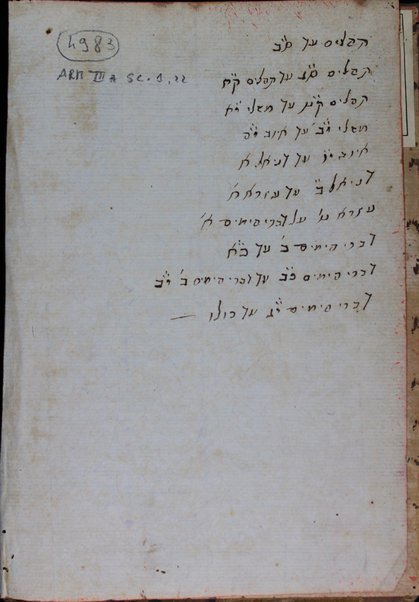 4983
ARM III a Sc. 9, 22
תהלים עד
תהלים עד תהלים ק"ח
תהלים ק"ט עד משלי י"א
משלי י"ב עד איוב
איוב עד דניאל א
דניאל ב' עד עזרא א
עזרא ב' על דברי הימים א'
דברי הימים ב' עד כ"א
דברי הימים כ"ב עד דברי הימים ב' י"ב
דברי הימים י"ג עד כולו —